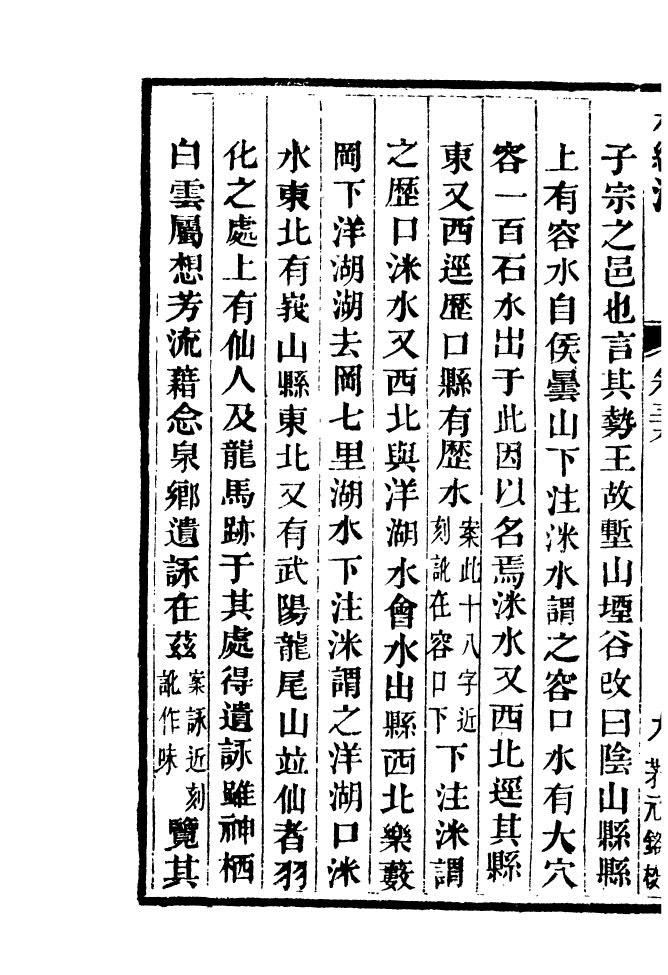 子宗之邑也言其勢王故塹山堙谷改曰陰山縣縣
上有容水自侯曇山下注洣水謂之容口水有大穴
容一百石水出于此因以名焉洣水又西北逕其縣
東又西逕歷口縣有歷水案此十八字近刻訛在容口下下注洣謂
之歷口洣水又西北與洋湖水會水出縣西北樂藪
岡下洋湖湖去岡七里湖水下注洣謂之洋湖口洣
水東北有峩山縣東北又有武陽龍尾山竝仙者羽
化之處上有仙人及龍馬跡于其處得遺詠雖神栖
白雲屬想芳流藉念泉鄉遺詠在茲案詠近刻訛作味覽其